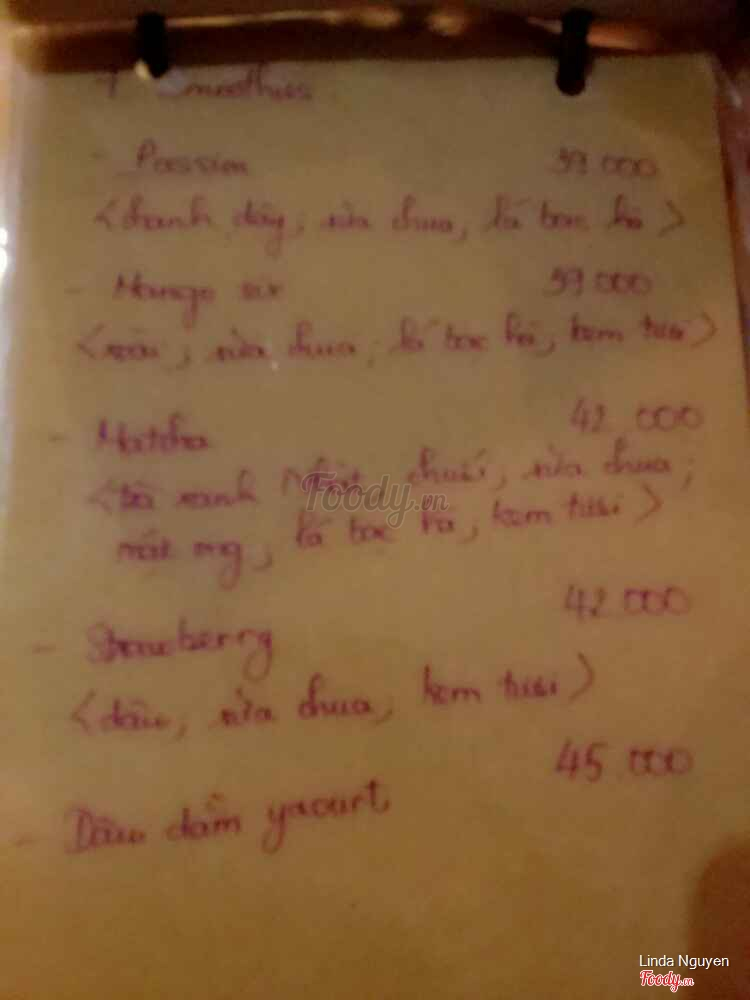 Smoothies
- Passion 39.000
<chanh dây, sữa chua, lá bạc hà>
- Mango 39.000
<xoài, sữa chua, lá bạc hà, kem tươi>
- Matcha 42.000
<trà xanh Nhật, chuối, sữa chua,
mật ong, lá bạc hà, kem tươi>
- Strawberry 42.000
<dâu, sữa chua, kem tươi>
- Dâu dầm yaourt 45.000
Foody.vn
Linda Nguyen
Foody.vn